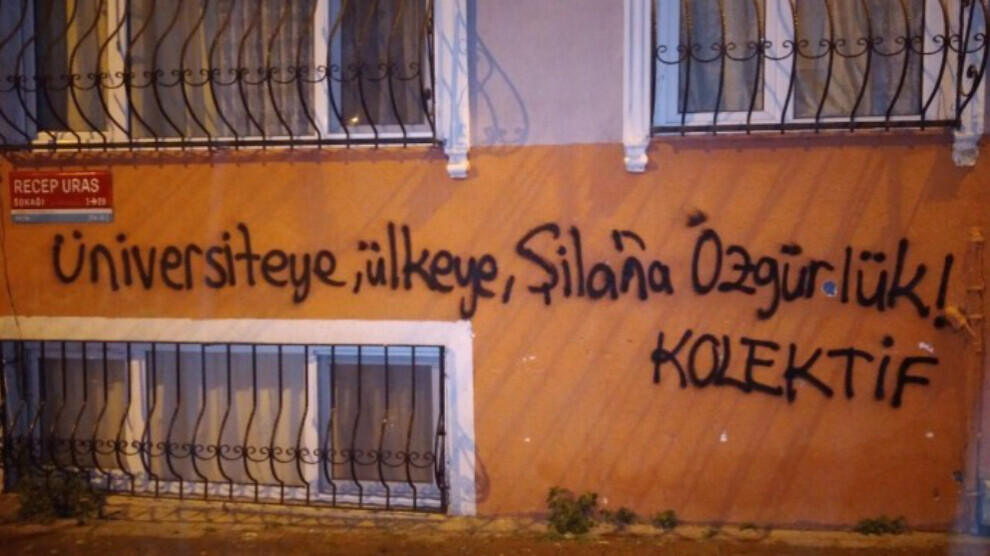 RECEP URAS
SOKAĞI 1→29
Üniversiteye, ülkeye, Şilan'a Özgürlük!
KOLEKTİF